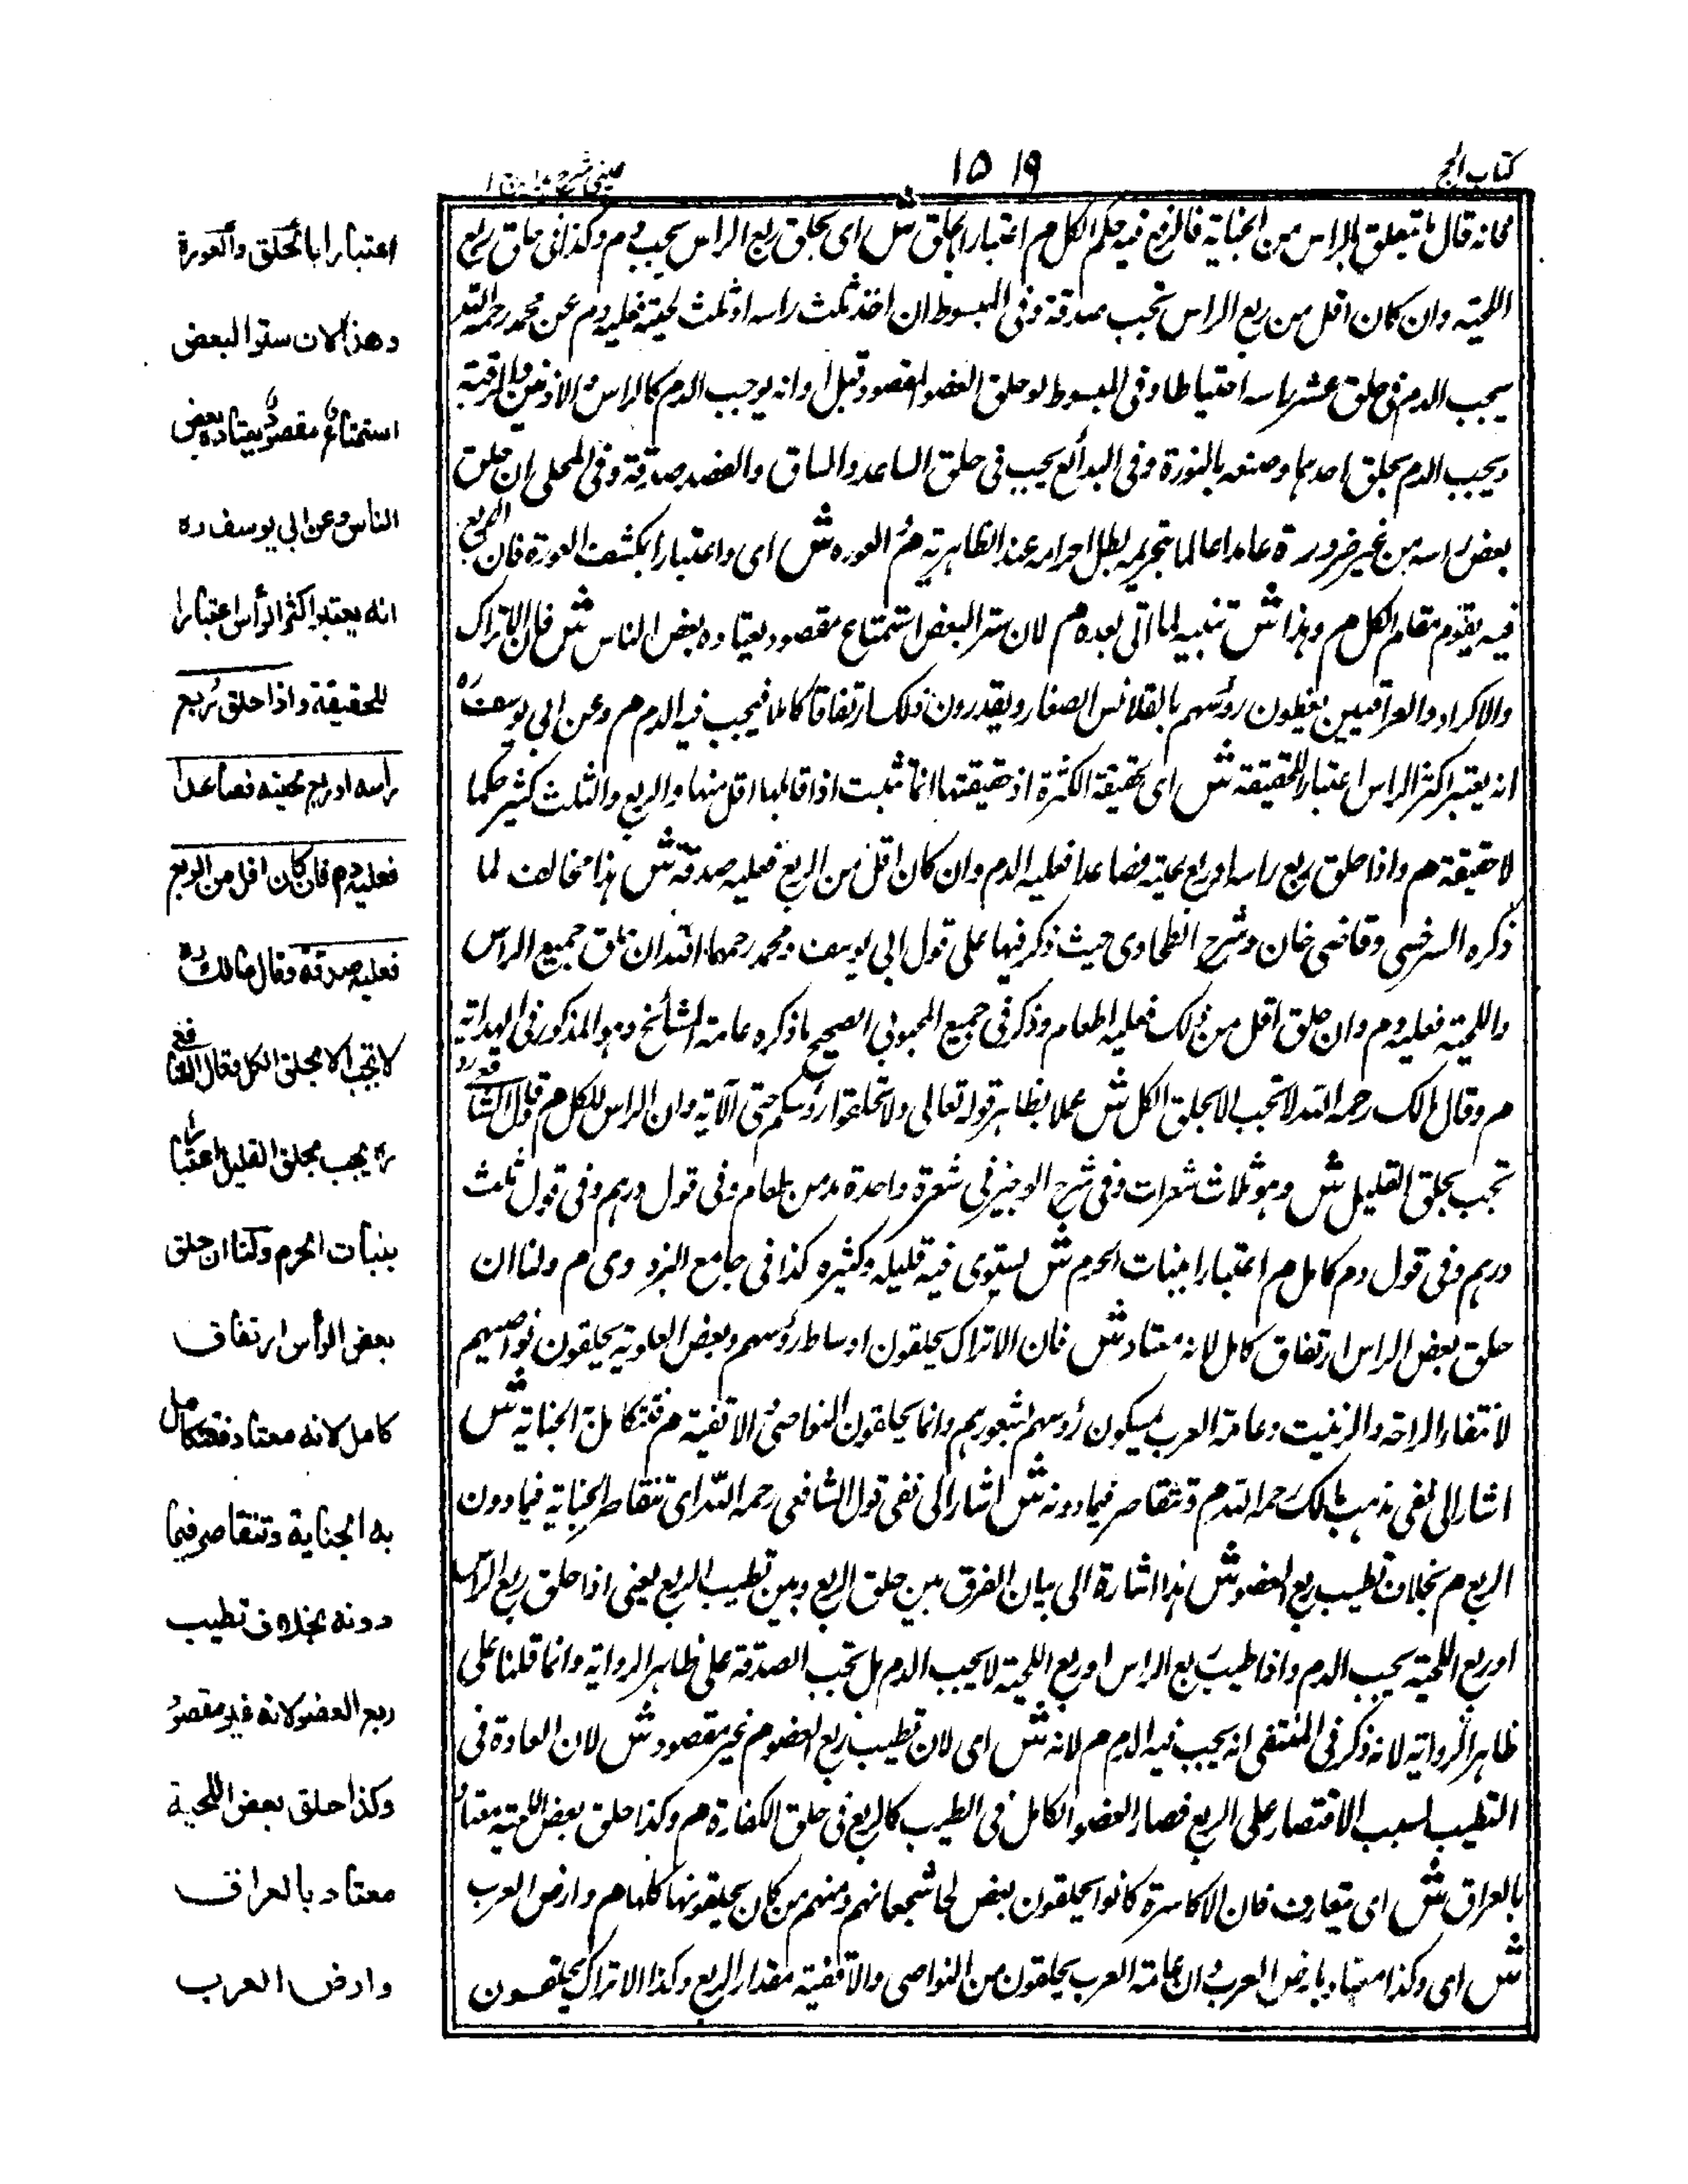 كتاب الحج
١٥١٩
عيني شرح هداية ج ١
فانه قال ما تتعلق بالراس من الجناية فالربع فيه حكم الكل م اعتبارا بالحلق ش اى بحلق ربع الراس يجب دم وكذا فى حلق ربع
اللحية وان كان اقل من ربع الراس تجب صدقة وفى المبسوط ان اخذ ثلث راسه او ثلث لحيته فعليه دم عن محمد رحمه الله
يجب الدم فى حلق عشر راسه احتياطا وفى المبسوط لو حلق العضو المقصود قبل اوانه يوجب الدم كالراس و
ويجب الدم بحلق احدهما وصنعه بالنورة وفى البدائع يجب فى حلق الساعد والساق والعضد صدقة وفى المحلى ان حلق
بعض راسه من غير ضرورة عامدا عالما بتحريمه بطل احرامه عند الظاهرية م والعورة ش اى واعتبارا بكشف العورة فان الربع
فيه يقوم مقام الكل م وهذا ش تنبيه لما اتى بعده م لان ستر البعض استمتاع مقصود يعتاده بعض الناس ش فان الاتراك
والاكراد والعراقيين يغطون رؤسهم بالقلانس الصغار ويقدرون ذلك ارتفاقا كاملا فيجب فيه الدم م وعن ابى يوسف ره
انه يعتبر اكثر الراس اعتبارا للحقيقة ش اى لحقيقة الكثرة اذ حقيقتها انما تثبت اذا قابلها اقل منها والربع والثلث كثير حكما
لا حقيقة م واذا حلق ربع راسه او ربع لحيته فصاعدا فعليه الدم وان كان اقل من الربع فعليه صدقة ش هذا مخالف لما
ذكره السرخسى وقاضى خان وشرح الطحاوى حيث ذكر فيها على قول ابى يوسف ومحمد رحمهما الله ان حلق جميع الراس
واللحية فعليه دم وان حلق اقل من ذلك فعليه اطعام وذكر فى جميع المحبوبى الصحيح ما ذكره عامة المشائخ وهو المذكور فى الهداية
م وقال مالك رحمه الله لا تجب الا بحلق الكل ش عملا بظاهر قوله تعالى ولا تحلقوا رؤسكم حتى الآية وان الراس للكل م وقال الشافعى ره
تجب بحلق القليل ش وهو ثلاث شعرات وفى شرح الوجيز فى شعرة واحدة مد من طعام وفى قول درهم وفى قول ثلث
درهم وفى قول دم كامل م اعتبارا بنبات الحرم ش يستوى فيه قليله وكثيره كذا فى جامع البزدوى م ولنا ان
حلق بعض الراس ارتفاق كامل لانه معتاد ش فان الاتراك يحلقون اوساط رؤسهم وبعض العلوية يحلقون نواصيهم
لابتغاء الراحة والزينة وعامة العرب يمسكون رؤسهم شعورهم وانما يحلقون النواصى والاقفية م فتتكامل الجناية ش
اشار الى نفى مذهب مالك رحمه الله م وتتقاصر فيما دونه ش اشار الى نفى قول الشافعى رحمه الله اى تتقاصر الجناية فيما دون
الربع م بخلاف تطييب ربع العضو ش هذا اشارة الى بيان الفرق بين حلق الربع وبين تطييب الربع يعنى اذا حلق ربع الراس
او ربع اللحية يجب الدم واذا طيب ربع الراس او ربع اللحية لا يجب الدم بل تجب الصدقة على ظاهر الرواية وانما قلنا على
ظاهر الرواية لانه ذكر فى المنتقى انه يجب فيه الدم م لانه ش اى لان تطييب ربع العضو م غير مقصود ش لان العادة فى
التطييب لسبب الاقتصار على الربع فصار العضو الكامل فى الطيب كالربع فى حلق الكفارة م وكذا حلق بعض اللحية معتاد
بالعراق ش اى متعارف فان الاكاسرة كانوا يحلقون بعض لحا شجعانهم ومنهم من كان يحلقونها كلها م وارض العرب
ش اى وكذا معتاد بارض العرب و ان عامة العرب يحلقون من النواصى والاقفية مقدار الربع وكذا الاتراك يحلقون
اعتبارا بالحلق والعورة
وهذا لان ستر البعض
استمتاع مقصود يعتاده بعض
الناس وعن ابي يوسف ره
انه يعتبر اكثر الرأس اعتبارا
للحقيقة واذا حلق ربع
رأسه او ربع لحيته فصاعدا
فعليه دم فان كان اقل من الربع
فعليه صدقة وقال مالك ره
لا تجب الا بحلق الكل وقال الشافعي
ره يجب بحلق القليل اعتبارا
بنبات الحرم ولنا ان حلق
بعض الرأس ارتفاق
كامل لانه معتاد فتتكامل
به الجناية وتتقاصر فيما
دونه بخلاف تطييب
ربع العضو لانه غير مقصود
وكذا حلق بعض اللحية
معتاد بالعراق
وارض العرب